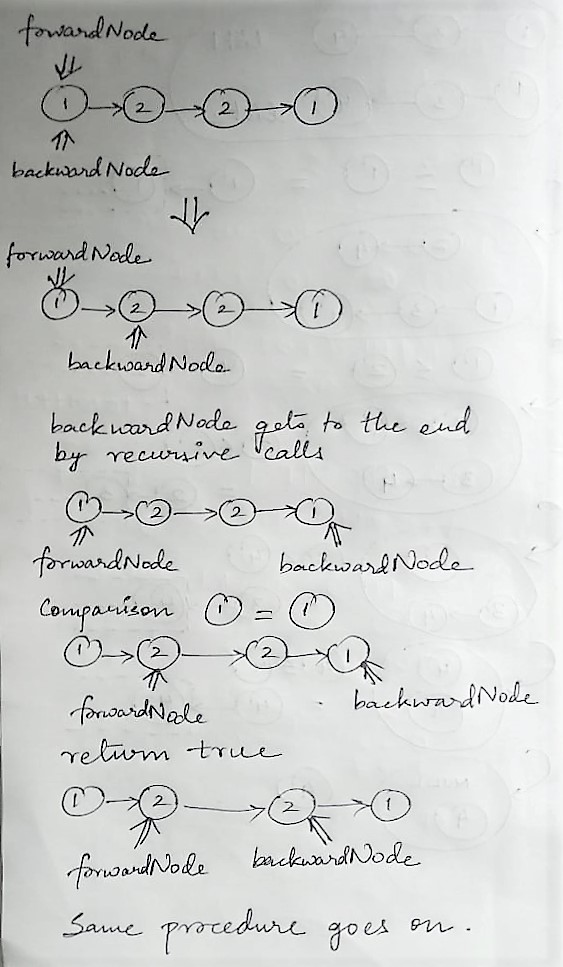 forwardNode
1 2 2 1
backwardNode
forwardNode
1 2 2 1
backwardNode
backwardNode gets to the end
by recursive calls
1 2 2 1
forwardNode backwardNode
Comparison 1 = 1
1 2 2 1
forwardNode backwardNode
return true
1 2 2 1
forwardNode backwardNode
Same procedure goes on.